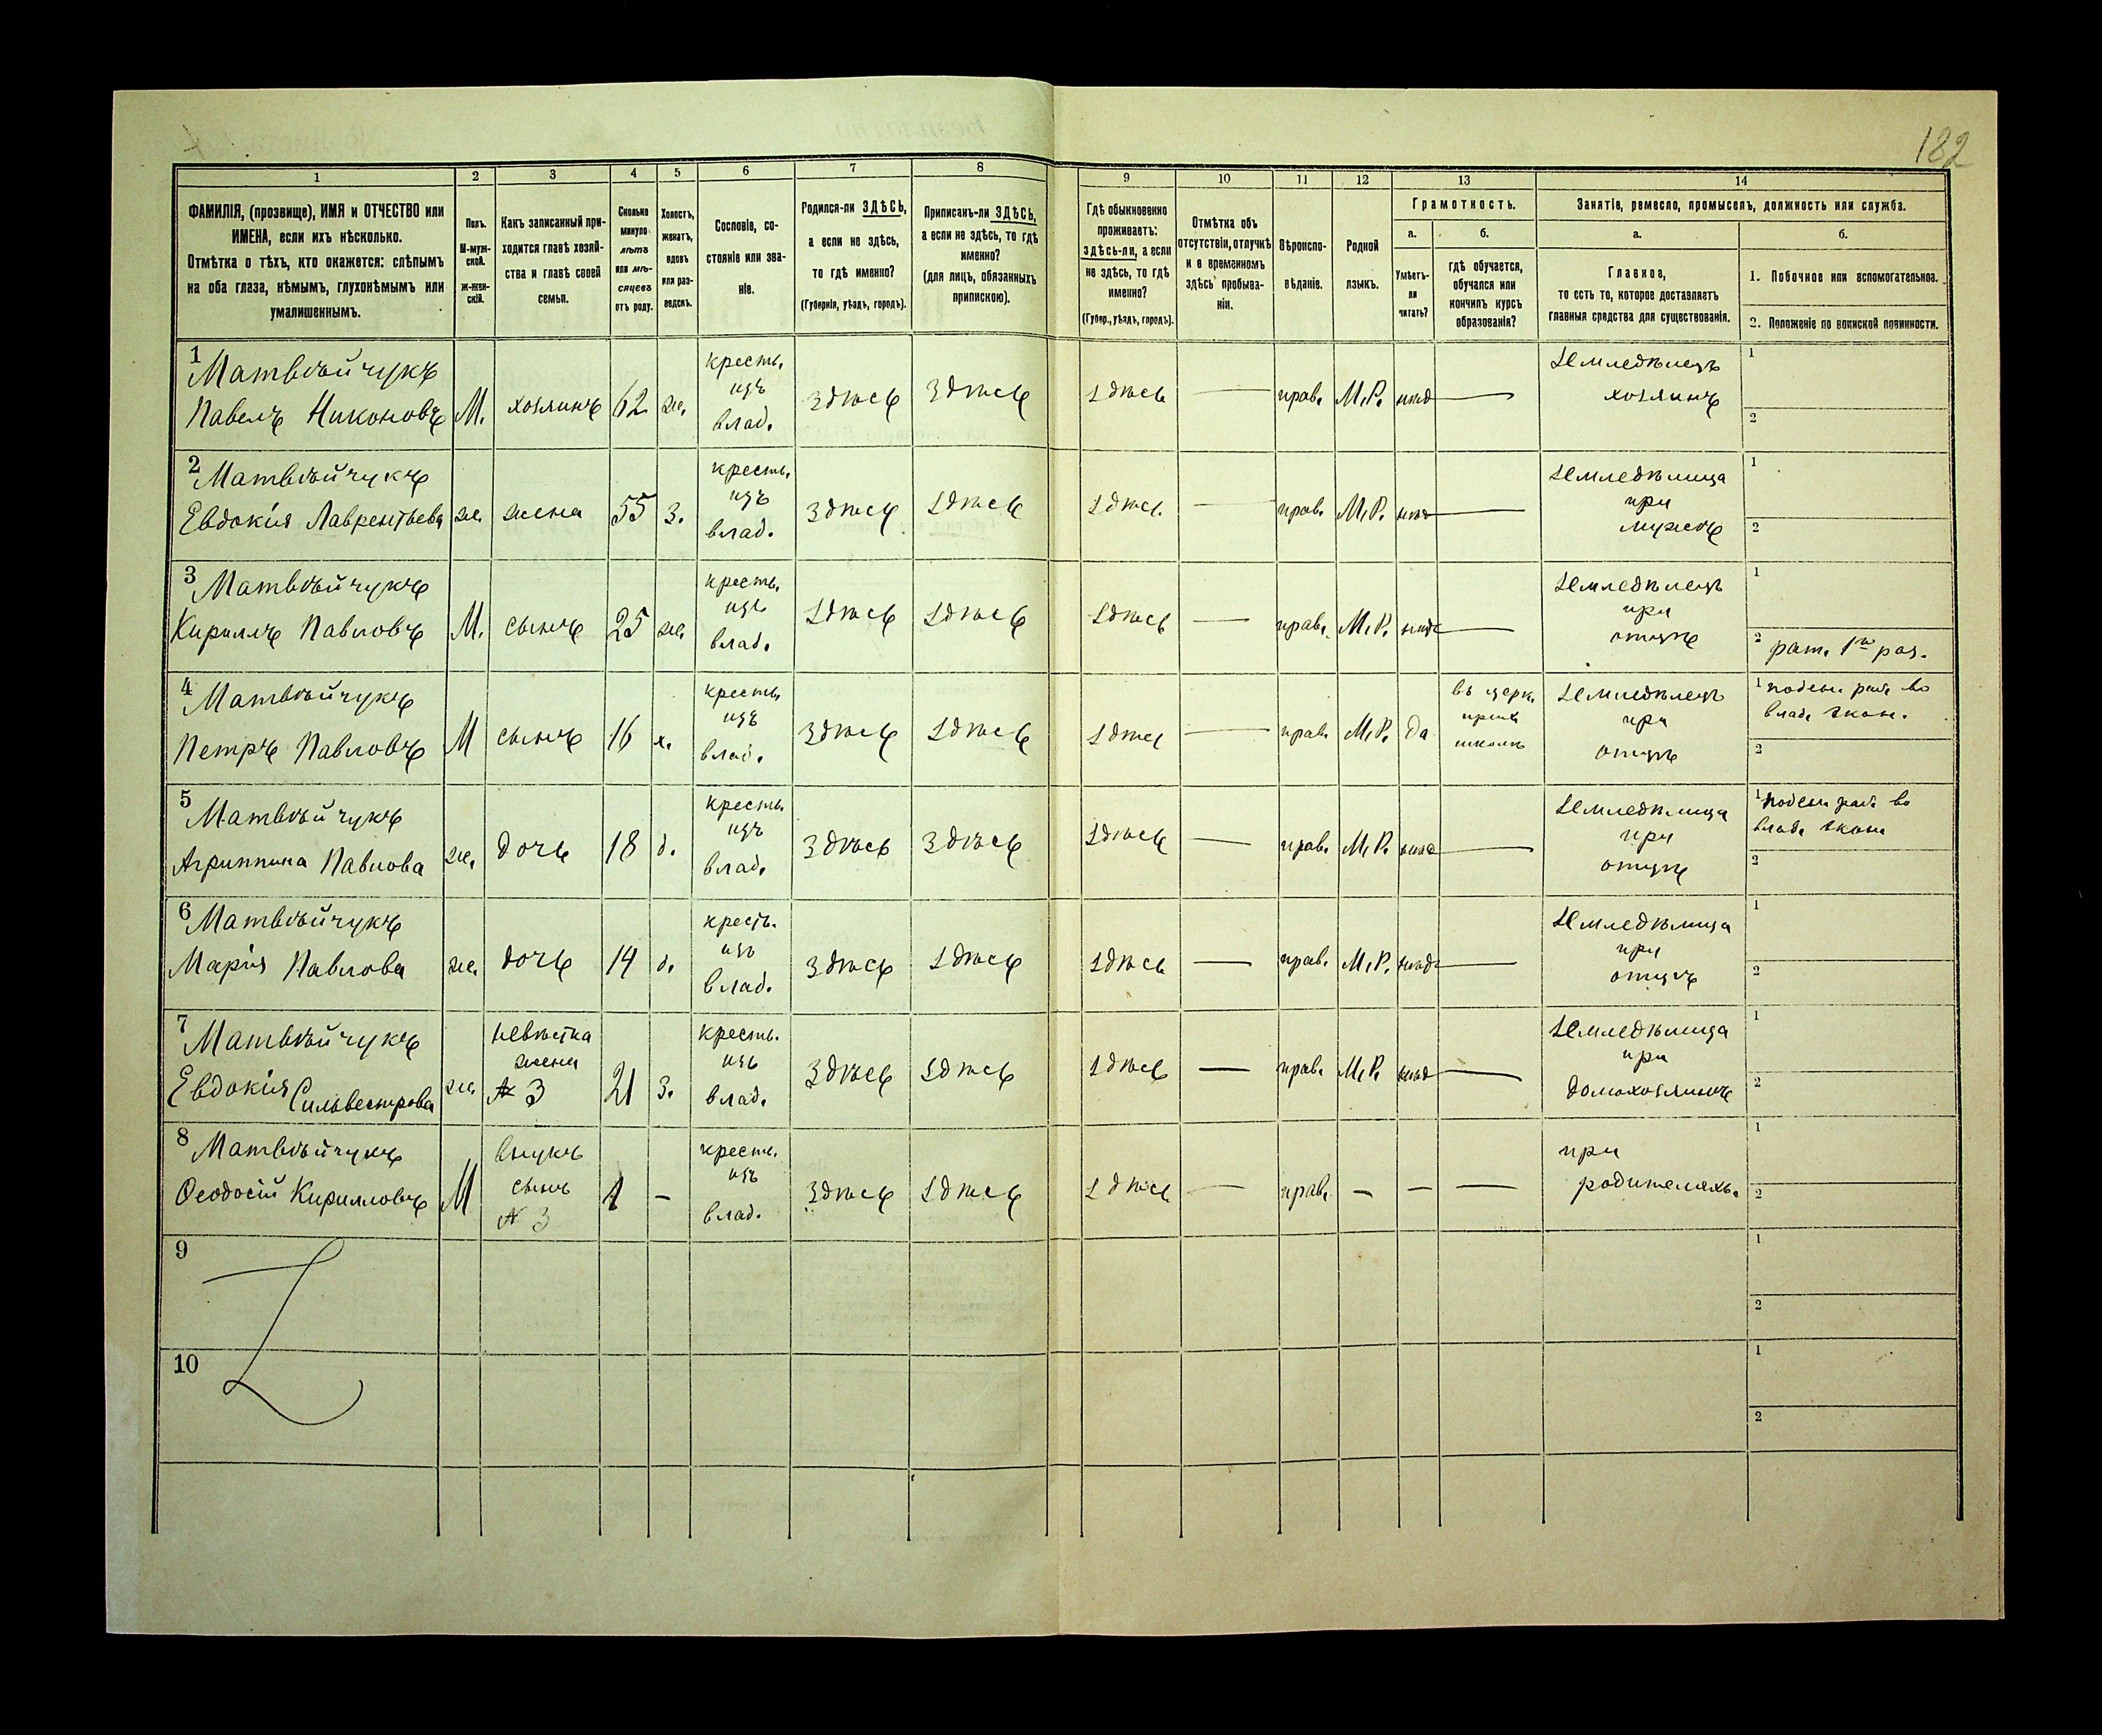 182
1 2 3 4 5 6 7 8 9 10 11 12 13 14
ФАМИЛІЯ, (прозвище), ИМЯ и ОТЧЕСТВО или
ИМЕНА, если ихъ нѣсколько.
Отмѣтка о тѣхъ, кто окажется: слѣпымъ
на оба глаза, нѣмымъ, глухонѣмымъ или
умалишеннымъ.
Полъ.
М-муж-
ской.
Ж-жен-
скій.
Какъ записанный при-
ходится главѣ хозяй-
ства и главѣ своей
семьи.
Сколько
минуло
лѣтъ
или мѣ-
сяцевъ
отъ роду.
Холостъ,
женатъ,
вдовъ
или раз-
веденъ.
Сословіе, со-
стояніе или зва-
ніе.
Родился-ли ЗДѢСЬ,
а если не здѣсь,
то гдѣ именно?
(Губернія, уѣздъ, городъ).
Приписанъ-ли ЗДѢСЬ,
а если не здѣсь, то гдѣ
именно?
(для лицъ, обязанныхъ
припискою).
Гдѣ обыкновенно
проживаетъ:
здѣсь-ли, а если
не здѣсь, то гдѣ
именно?
(Губер., уѣздъ, городъ).
Отмѣтка объ
отсутствіи, отлучкѣ
и о временномъ
здѣсь пребыва-
ніи.
Вѣроиспо-
вѣданіе.
Родной
языкъ.
Грамотность.
а.
Умѣетъ-
ли
читать?
б.
гдѣ обучается,
обучался или
кончилъ курсъ
образованія?
Занятіе, ремесло, промыселъ, должность или служба.
а.
Главное,
то есть то, которое доставляетъ
главныя средства для существованія.
б.
1. Побочное или вспомогательное.
2. Положеніе по воинской повинности.
1 Матвѣйчукъ
Павелъ Никоновъ М. хозяинъ 62 же. кресть. изъ влад. здѣсь здѣсь здѣсь — прав. М.Р. — земледѣлецъ хозяинъ 1 2
2 Матвѣйчукъ
Евдокія Лаврентьева же. жена 55 з. кресть. изъ влад. здѣсь здѣсь здѣсь — прав. М.Р. — земледѣлица при мужѣ 1 2
3 Матвѣйчукъ
Кириллъ Павловъ М. сынъ 25 же. кресть. изъ влад. здѣсь здѣсь здѣсь — прав. М.Р. — земледѣлецъ при отцѣ 1 2 рат. 1го раз.
4 Матвѣйчукъ
Петръ Павловъ М сынъ 16 х. кресть. изъ влад. здѣсь здѣсь здѣсь — прав. М.Р. да въ церк. прих. школѣ земледѣлецъ при отцѣ 1 поден. раб. во влад. экон. 2
5 Матвѣйчукъ
Агриппина Павлова же. дочь 18 д. кресть. изъ влад. здѣсь здѣсь здѣсь — прав. М.Р. — земледѣлица при отцѣ 1 поден. раб. во влад. экон. 2
6 Матвѣйчукъ
Марія Павлова же. дочь 14 д. кресть. изъ влад. здѣсь здѣсь здѣсь — прав. М.Р. — земледѣлица при отцѣ 1 2
7 Матвѣйчукъ
Евдокія Сильвестрова же. невѣстка жена № 3 21 з. кресть. изъ влад. здѣсь здѣсь здѣсь — прав. М.Р. — земледѣлица при домохозяинѣ 1 2
8 Матвѣйчукъ
Ѳеодосій Кирилловъ М внукъ сынъ № 3 1 — кресть. изъ влад. здѣсь здѣсь здѣсь — прав. — — — при родителяхъ. 1 2
9 1 2
10 1 2